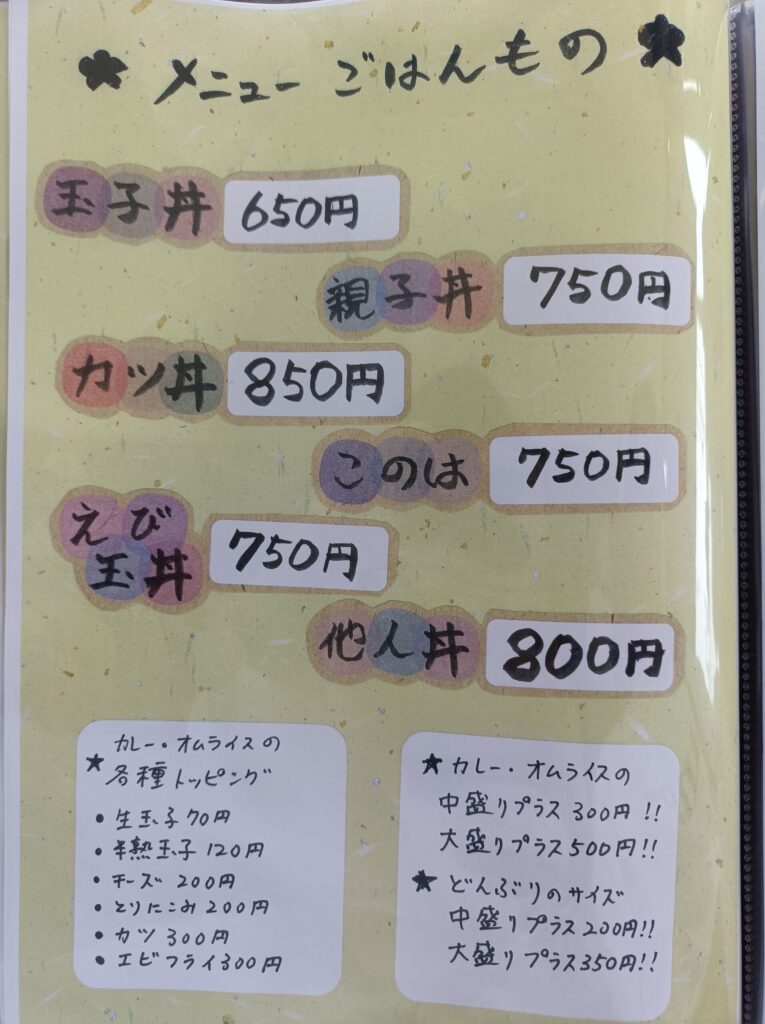 ★ メニュー ごはんもの ★
玉子丼 650円
親子丼 750円
カツ丼 850円
このは 750円
えび
玉丼 750円
他人丼 800円
★ カレー・オムライスの
各種トッピング
• 生玉子 70円
• 半熟玉子 120円
• チーズ 200円
• とりにこみ 200円
• カツ 300円
• エビフライ 300円
★ カレー・オムライスの
中盛りプラス 300円!!
大盛りプラス 500円!!
★ どんぶりのサイズ
中盛りプラス 200円!!
大盛りプラス 350円!!